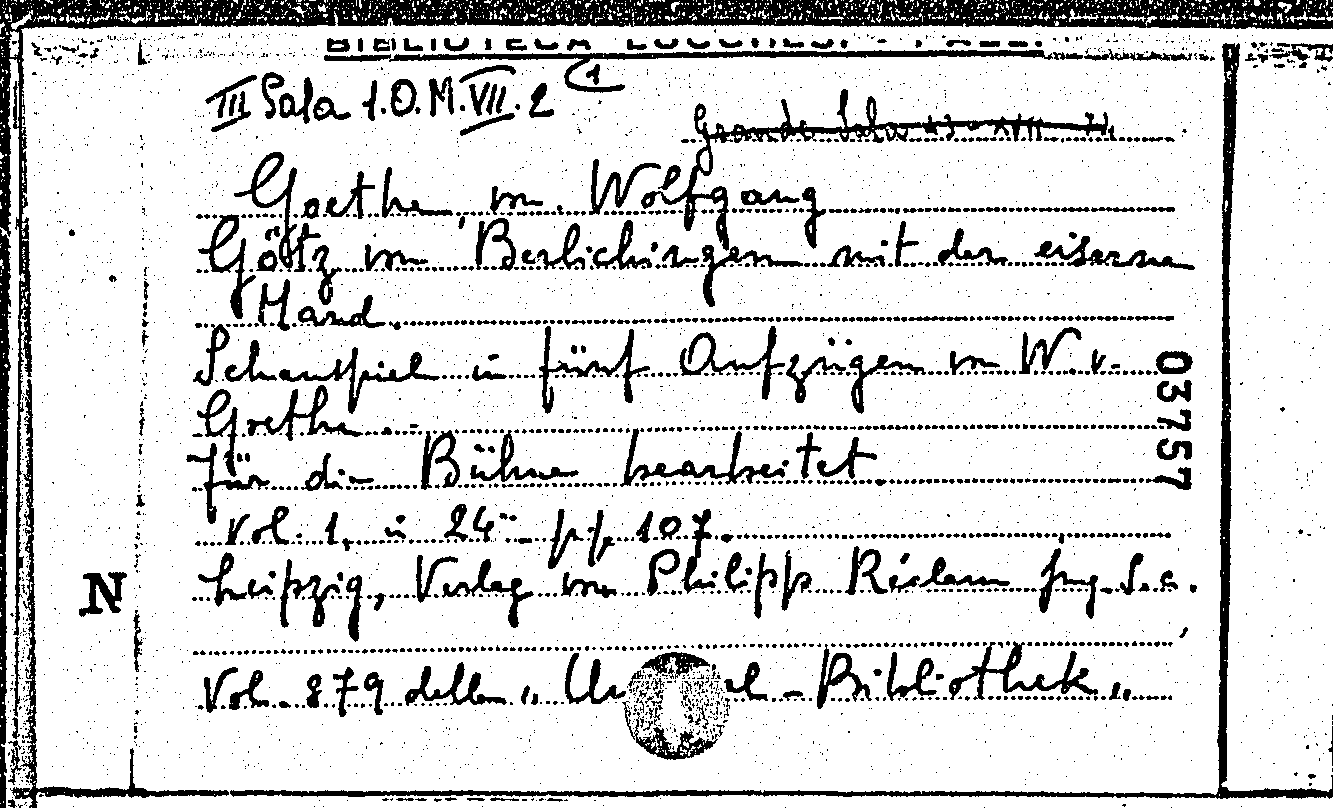 BIBLIOTECA LUCCHESI - PALL.
III Sala 1.O.M.VII.2 1
Grande Sala
Goethe, von. Wolfgang
Götz von Berlichingen mit der eiserne
Hand.
Schauspiel in fünf Aufzügen von W. v.
Goethe.-
für die Bühne bearbeitet.
Vol. 1, in 24°- pp. 107.
03757
Leipzig, Verlag von Philipp Reclam jung. S.a.
N
Vol. 879 della „ Bibliothek „